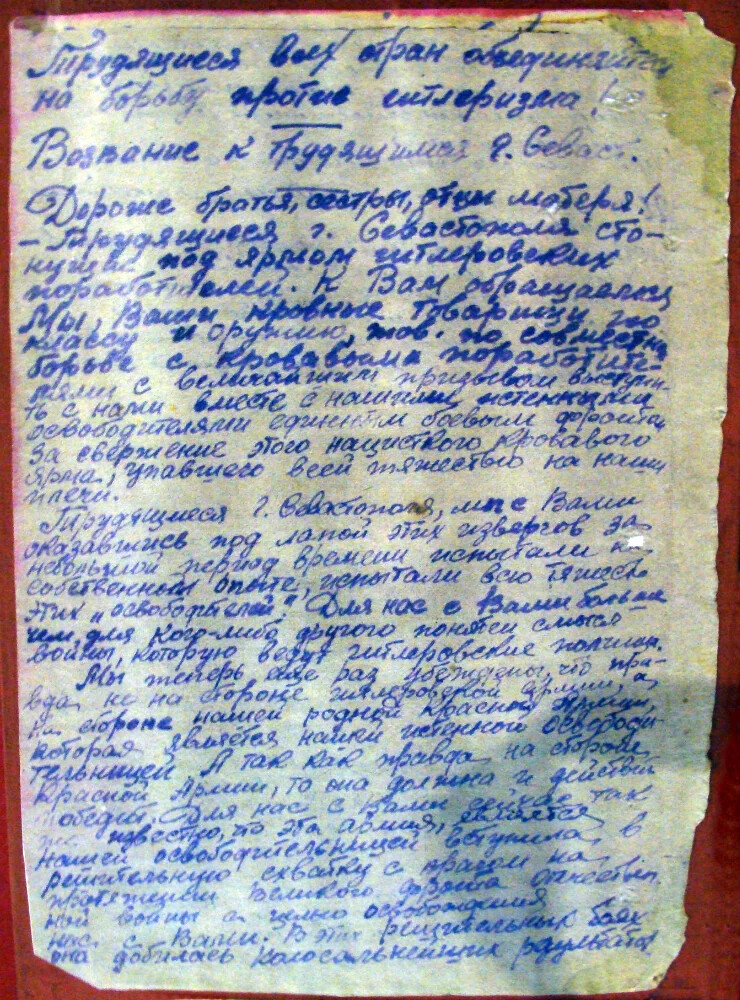 Трудящиеся всех стран объединяйтесь
на борьбу против гитлеризма!
Воззвание к трудящимся г. Севаст.
Дороже братья, сестры, отцы матеря!
– Трудящиеся г. Севастополя сто-
нущие под ярмом гитлеровских
поработителей. К Вам обращаемся
Мы, Ваши кровные товарищи по
классу и оружию, тов. по совместн
борьбе с кровавыми поработите-
лями с величайшим призывом выступи-
ть с нами вместе с нашими истенными
освободителями единным боевым фронтом
За свержение этого нацисткого кровавого
ярма, упавшего всей тяжестью на наши
плечи.
Трудящиеся г. Севастополя, мы с Вами
оказавшись под лапой этих извергов за
небольшой период времени испытали на
собственном опыте, испытали всю тяжесть
этих „освободителей". Для нас с Вами больше
чем для кого-либо другого понятен смысл
войны, которую ведут гитлеровские полчища.
Мы теперь еще раз убеждены, что пра-
вда не на стороне гитлеровской армии, а
на стороне нашей родной Красной Армии,
которая является нашей истенной освободи-
тельницей. А так как правда на стороне
Красной Армии, то она должна и действия
победит. Для нас с Вами сейчас так
же известно, что эта армия, является
нашей освободительницей вступила в
решительную схватку с врагом на
протяжении Великого фронта отечествен
ной войны с целью освобождения
нас с Вами. В этих решительных боях
она добилась колосальнейших результатов